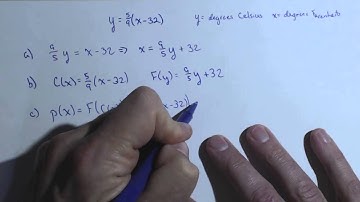 y = 5/9(x-32) y = degrees Celsius x = degrees Farenheit
a) 9/5 y = x-32 ⇒ x = 9/5 y + 32
b) C(x) = 5/9(x-32) F(y) = 9/5 y + 32
c) p(x) = F( x-32)